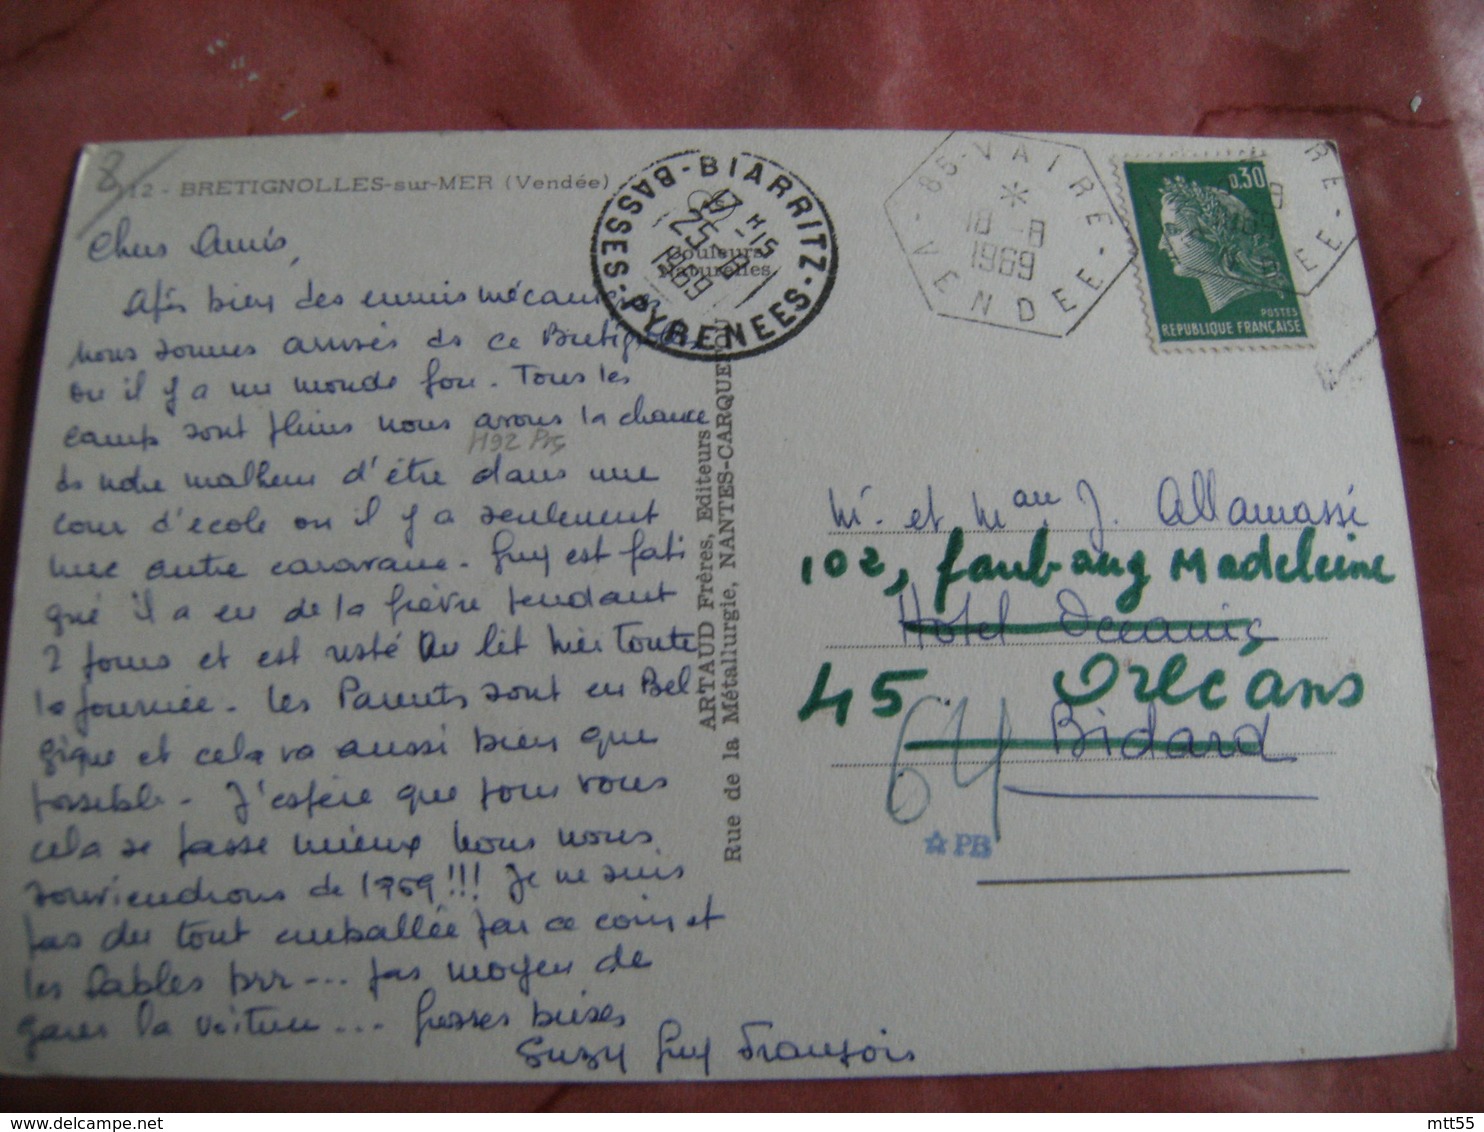 8
12 - BRETIGNOLLES-sur-MER (Vendée)
Couleurs
Naturelles
BIARRITZ
BASSES-PYRENEES
25 -8
1969
85-VAIRE
*
18 -8
1969
VENDEE
0,30
POSTES
REPUBLIQUE FRANÇAISE
Chers Amis,
Après bien des ennuis mécaniques
nous sommes arrivés ds ce Bretignolles
ou il y a un monde fou. Tous les
camps sont pleins nous avons la chance
ds notre malheur d'être dans une
cour d'école ou il y a seulement
une autre caravane. Guy est fati
gué il a eu de la fièvre pendant
2 jours et est resté au lit hier toute
la journée. Les Parents sont en Bel
gique et cela va aussi bien que
possible. J'espère que pour vous
cela se passe mieux nous nous
souviendrons de 1969 !!! Je ne suis
pas du tout emballée par ce coin et
les Sables brr... pas moyen de
garer la voiture... Grosses bises
Suzy Guy François
ARTAUD Frères, Editeurs
Rue de la Métallurgie, NANTES-CARQUEFOU
M. et Mme J. Allamassi
102, faubourg Madeleine
Hôtel Océanic
45 Orléans
Bidard
64
☆PB
mtt55